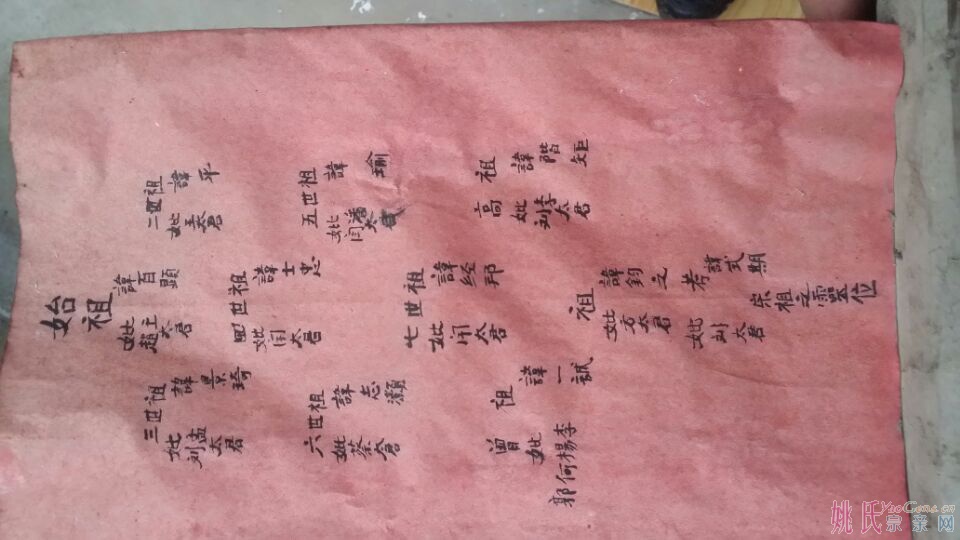 始祖
諱百顯
妣趙王太君
二世祖諱平
妣太君
三世祖諱景琦
妣刘孟太君
四世祖諱士忠
妣闫太君
五世祖諱瑜
妣闫潘太君
六世祖諱志灝
妣蔡太君
七世祖諱经邦
妣太君
高祖諱階矩
妣刘李太君
曾祖諱一誠
妣郭何楊李
祖諱鈞之
妣方太君
考諱式期
妣刘太君
宗祖之靈位
姚氏宗亲网